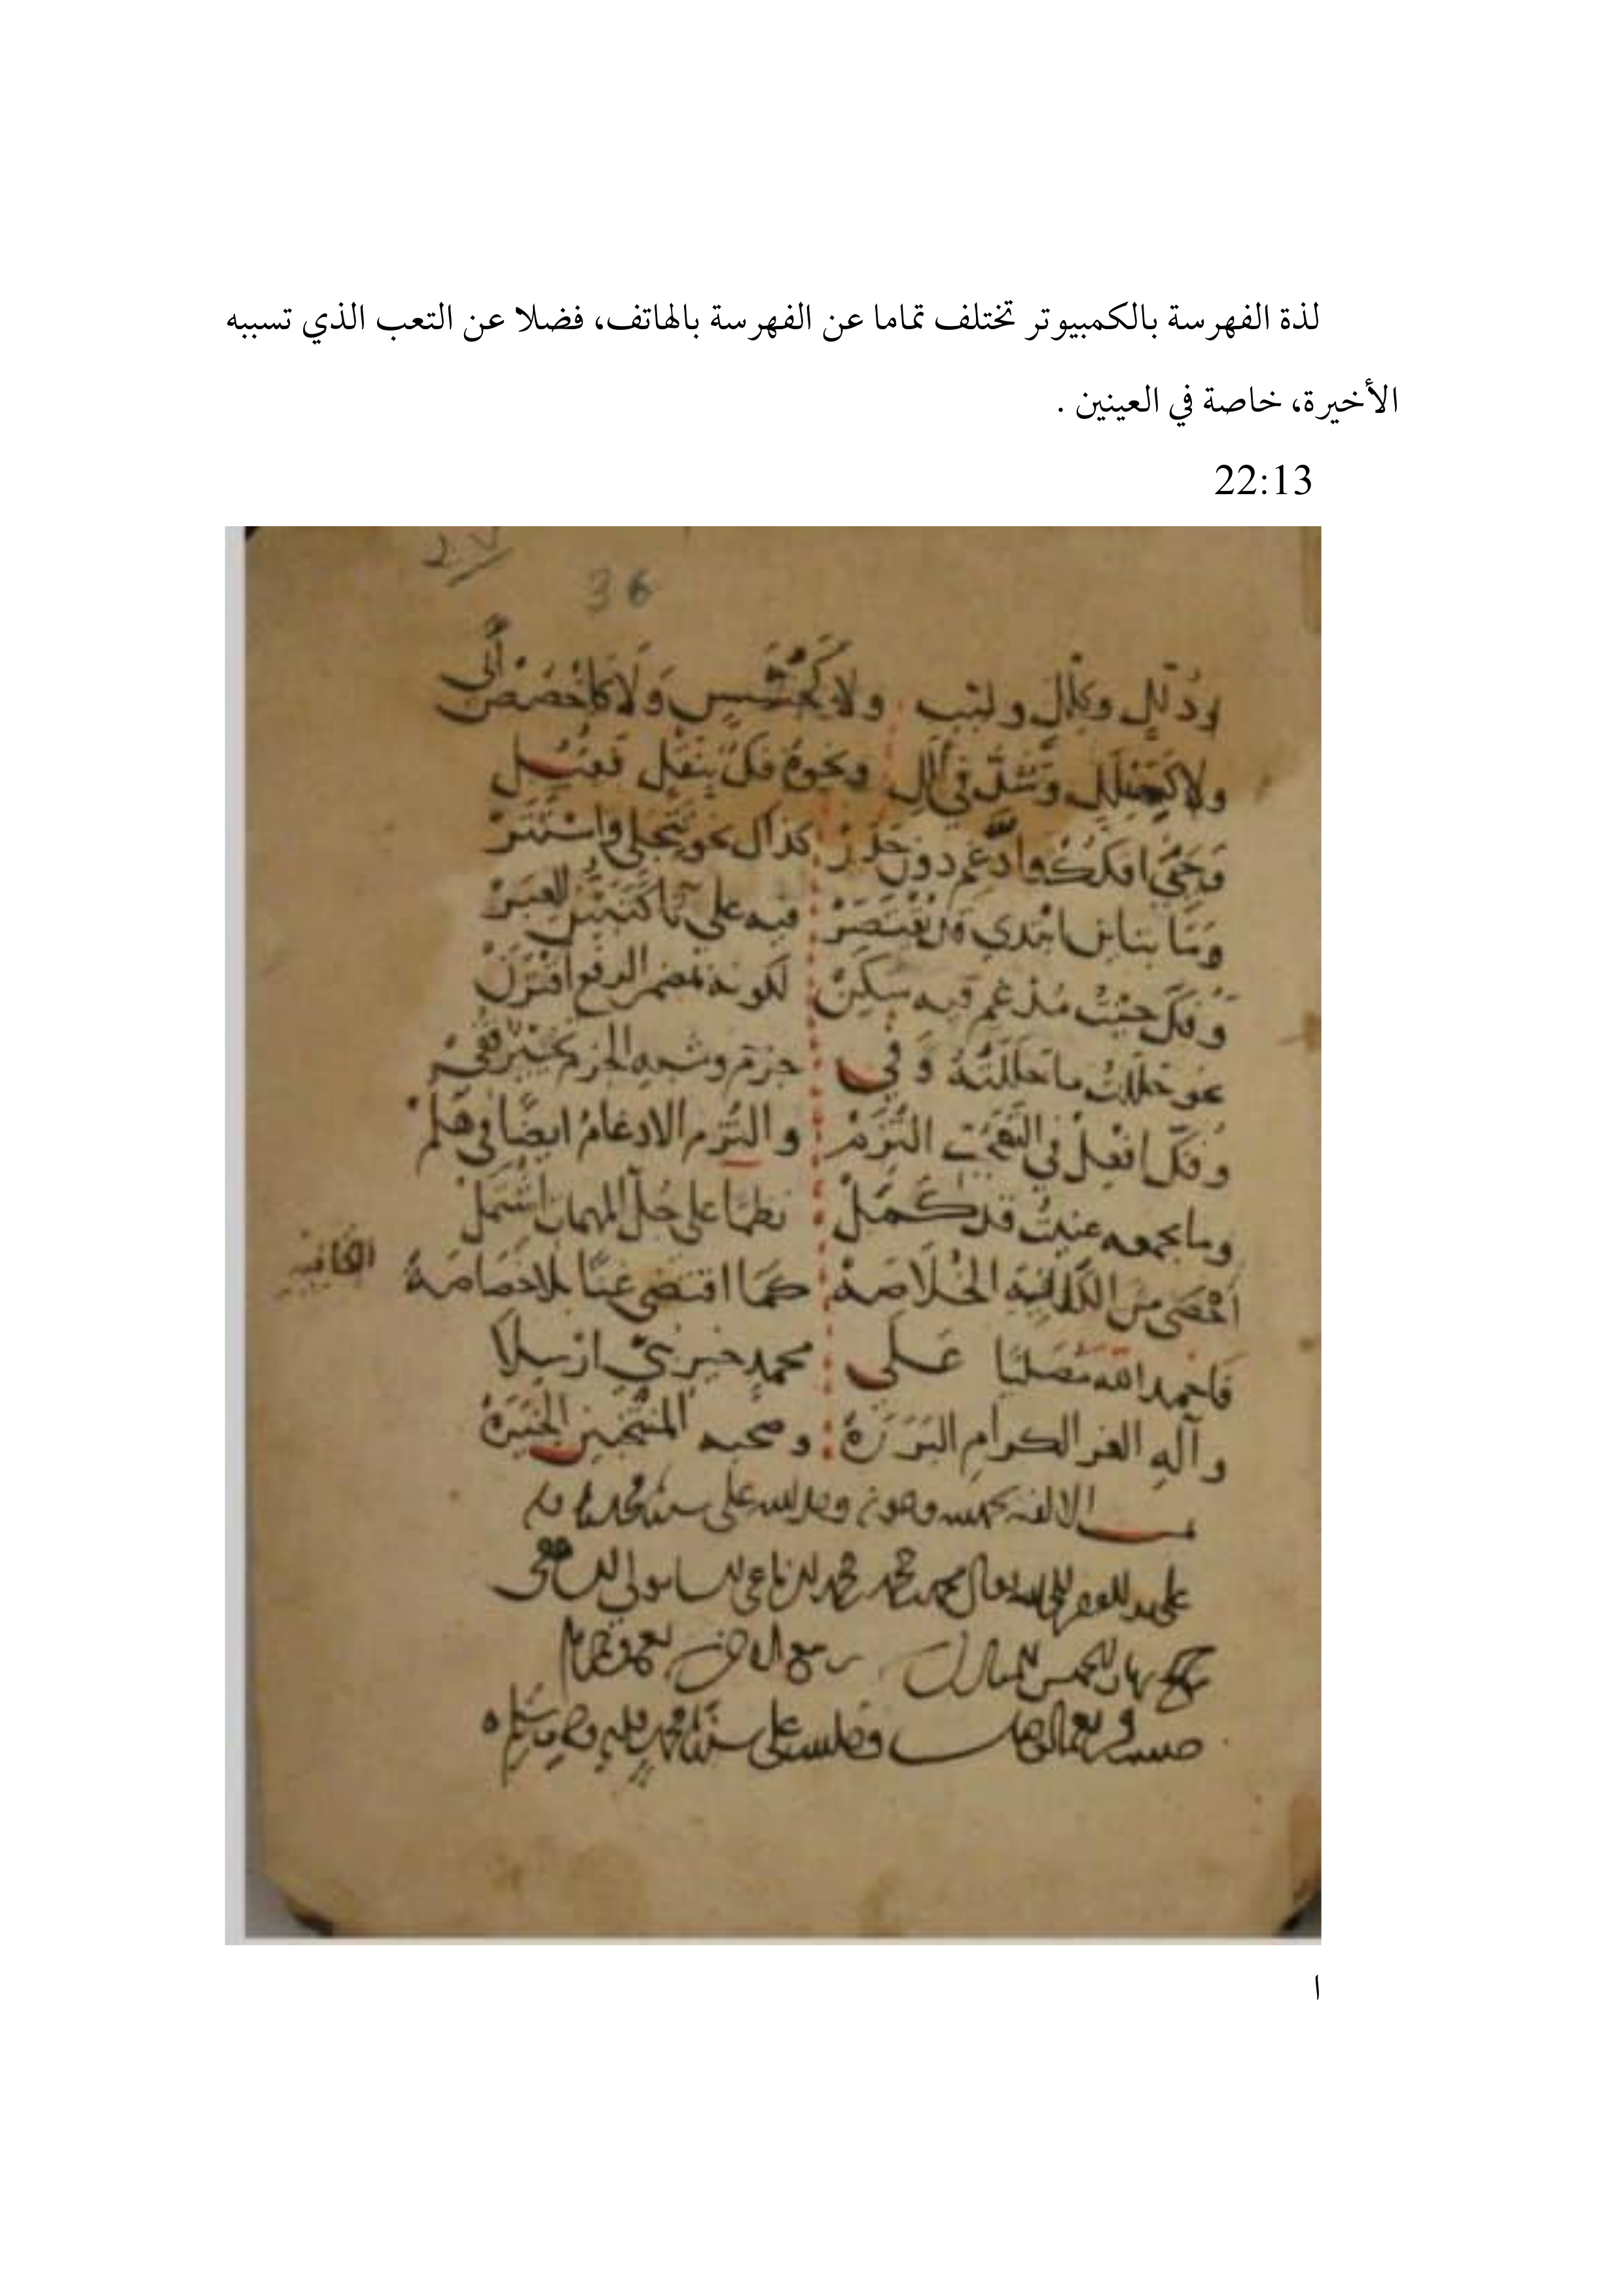 لذة الفهرسة بالكمبيوتر تختلف تماما عن الفهرسة بالهاتف، فضلا عن التعب الذي تسببه
الأخيرة، خاصة في العينين .
22:13
36
وذلل وكلل ولبب ولا كجسس ولا كاخصص أبي
ولا كهيلل وشذ في ألل ونحوه فك بنقل فقبل
وحيي افكك وادغم دون حذر كذاك نحو تتجلى واستتر
وما بتاين ابتدي قد يقتصر فيه على تا كتبين العبر
وفك حيث مدغم فيه سكن لكونه بمضمر الرفع اقترن
نحو حللت ما حللته وفي جزم وشبه الجزم تخيير قفي
وفك افعل في التعجب التزم والتزم الادغام ايضا في هلم
وما بجمعه عنيت قد كمل نظما على جل المهمات اشتمل
أحصى من الكافية الخلاصة كما اقتضى غنا بلا خصاصة
الكافية
فاحمد الله مصليا على محمد خير نبي ارسلا
وآله الغر الكرام البررة وصحبه المنتخبين الخيرة
الالفية بحمد الله وعونه وصلى الله على سيدنا محمد
على يد
نهار الخميس المبارك ربيع
على سيدنا محمد وآله وصحبه وسلم
ا